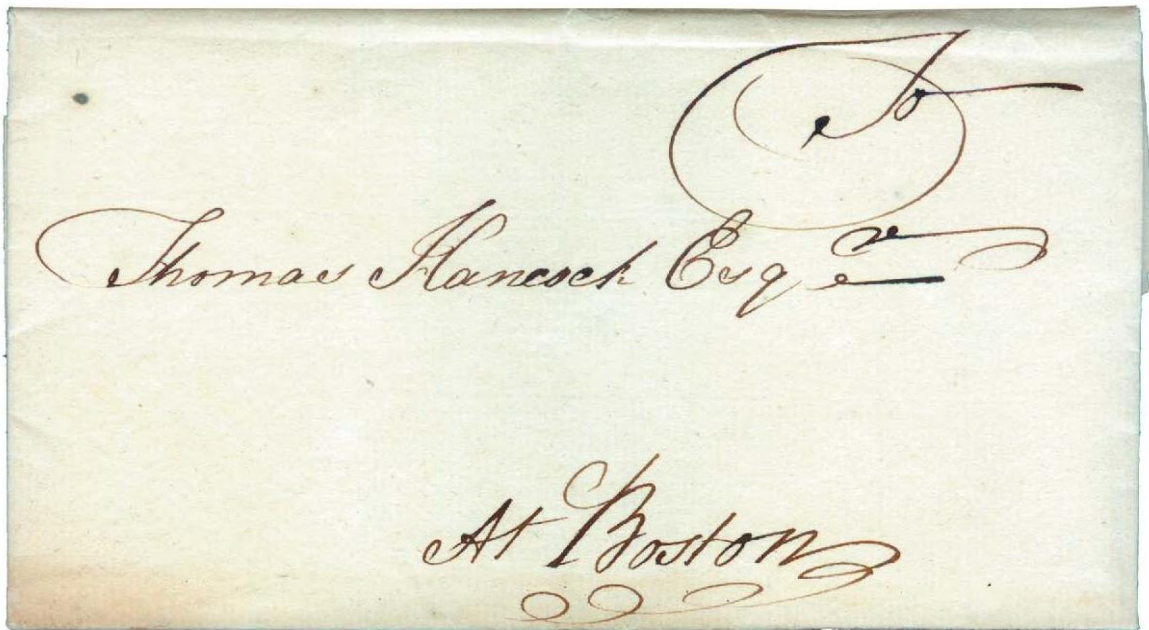 To
Thomas Hancock Esqre
At Boston